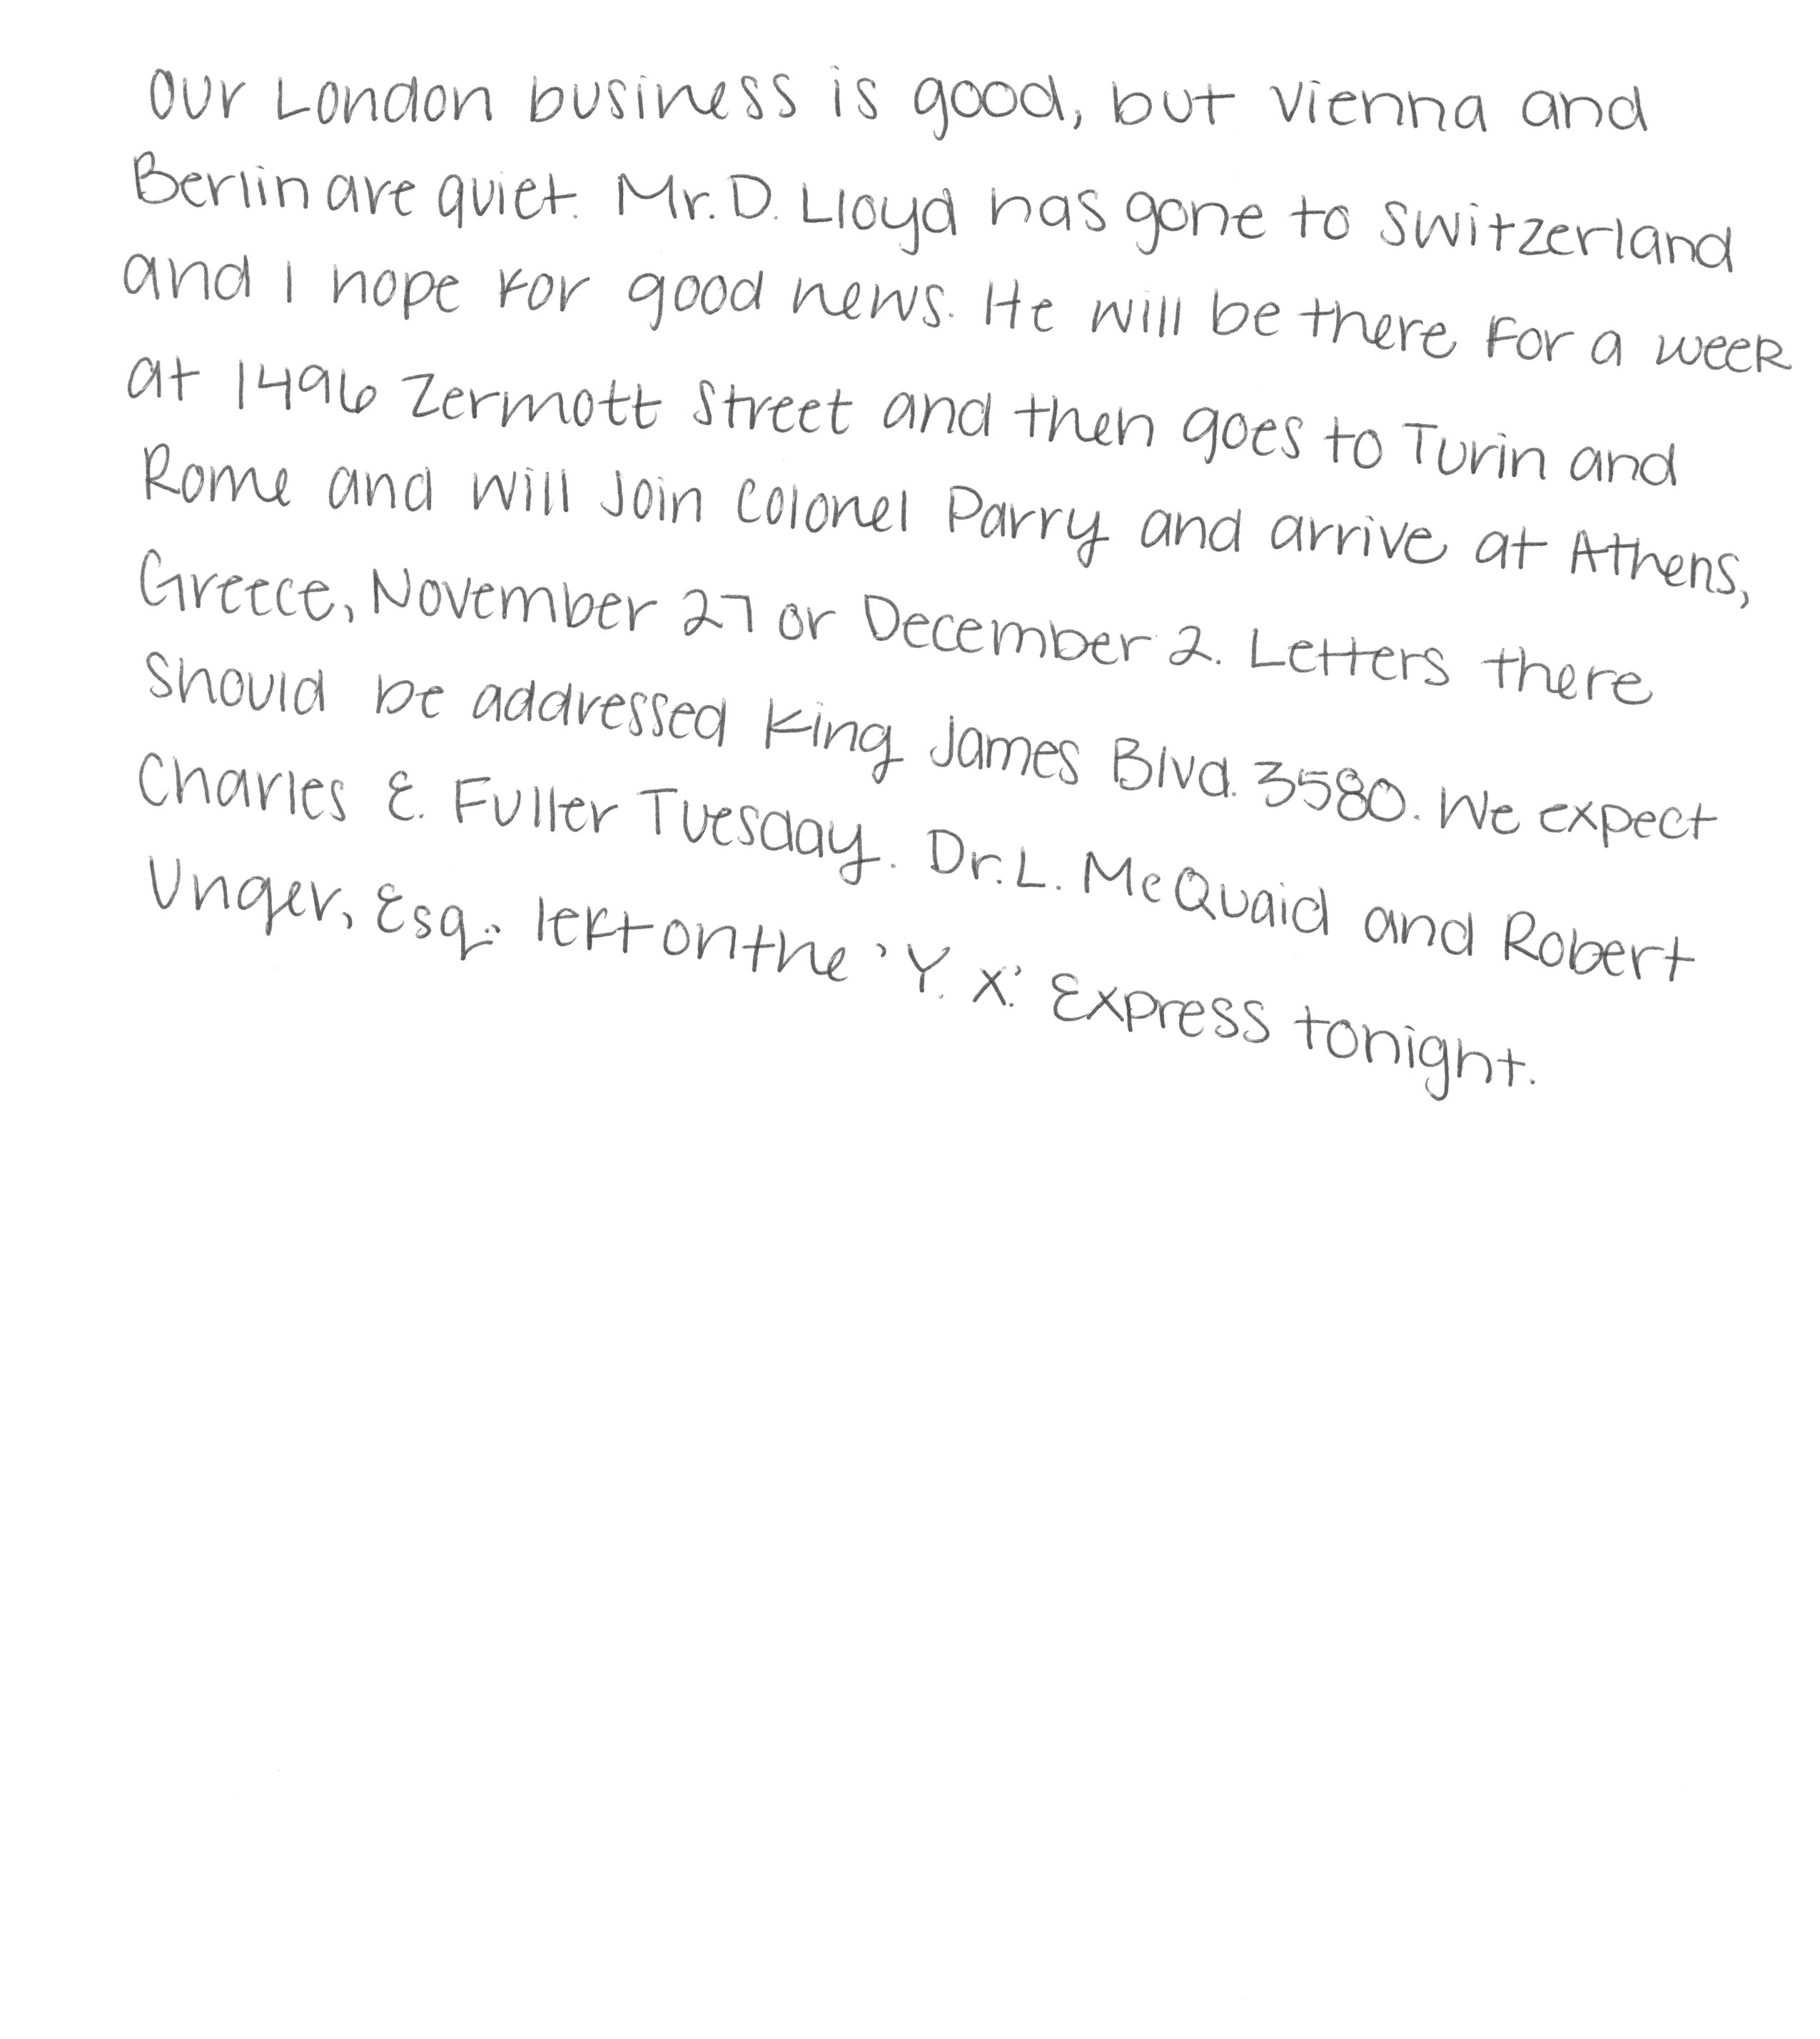 Our London business is good, but Vienna and
Berlin are quiet. Mr. D. Lloyd has gone to Switzerland
and I hope for good news. He will be there for a week
at 1496 Zermott Street and then goes to Turin and
Rome and will join Colonel Parry and arrive at Athens,
Greece, November 27 or December 2. Letters there
should be addressed King James Blvd. 3580. We expect
Charles E. Fuller Tuesday. Dr. L. McQuaid and Robert
Unger, Esq., left on the 'Y. X.' Express tonight.